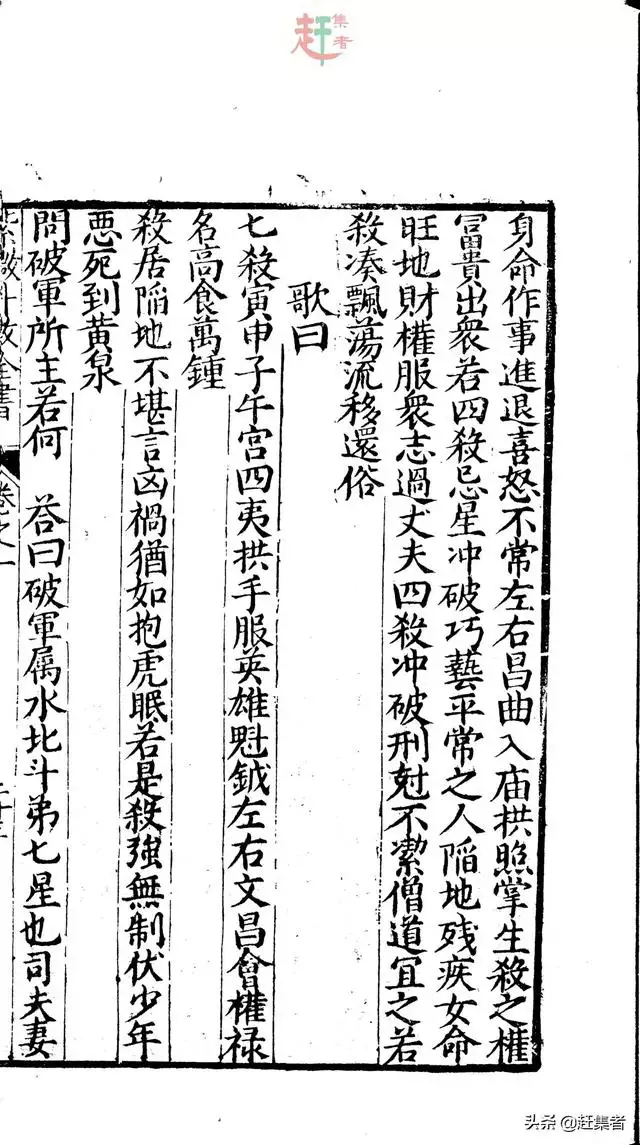 赶集者
身命作事進退喜怒不常左右昌曲入庙拱照掌生殺之權
冨貴出衆若四殺忌星冲破巧藝平常之人陥地残疾女命
旺地財權服衆志過丈夫四殺冲破刑尅不潔僧道宜之若
殺凑飄蕩流移還俗
歌曰
七殺寅申子午宮四夷拱手服英雄魁鉞左右文昌會權禄
名高食萬鍾
殺居陥地不堪言凶禍猶如抱虎眠若是殺強無制伏少年
悪死到黄泉
問破軍所主若何 荅曰破軍属水北斗弟七星也司夫妻
紫微斗数全書 卷之一
头条 @赶集者